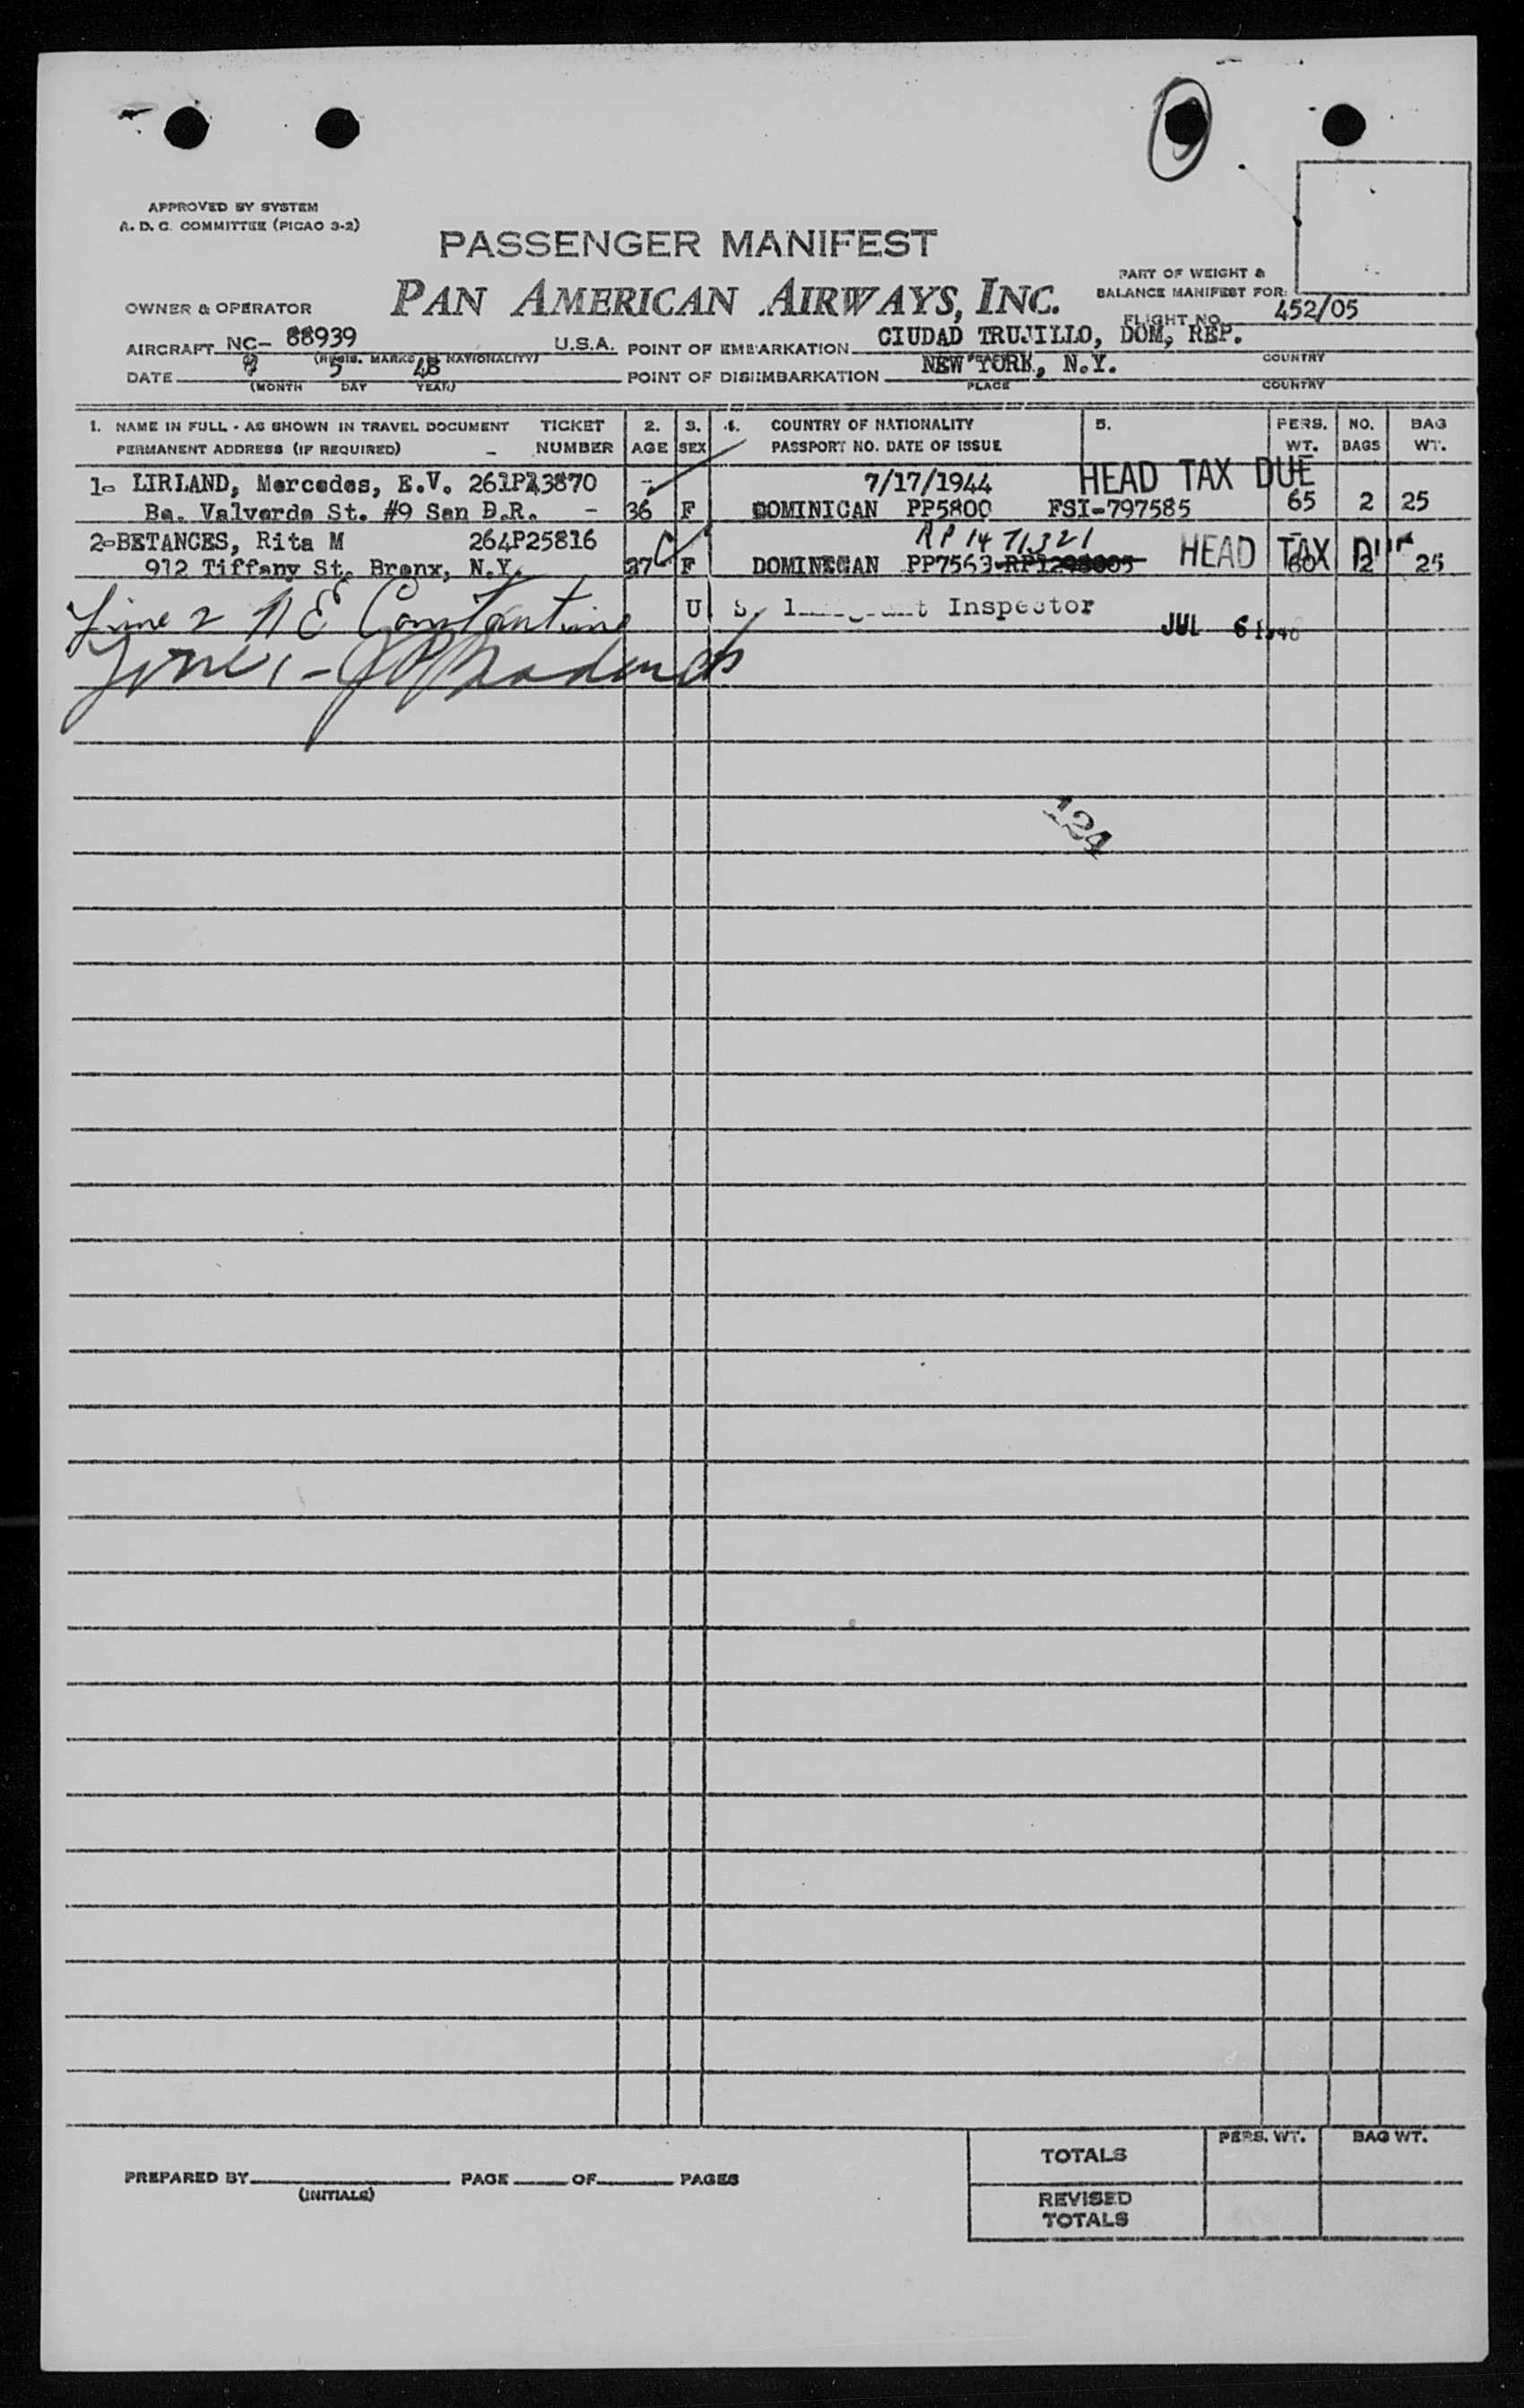 APPROVED BY SYSTEM
A. D. C. COMMITTEE (PICAO 3-2)
PASSENGER MANIFEST
PAN AMERICAN AIRWAYS, INC.
PART OF WEIGHT &
BALANCE MANIFEST FOR:
FLIGHT NO. 452/05
OWNER & OPERATOR
AIRCRAFT NC- 88939 U.S.A. POINT OF EMBARKATION CIUDAD TRUJILLO, DOM, REP.
(REGIS. MARKS & NATIONALITY) PLACE COUNTRY
DATE 5 POINT OF DISEMBARKATION NEW YORK, N.Y.
(MONTH DAY YEAR) PLACE COUNTRY
1. NAME IN FULL - AS SHOWN IN TRAVEL DOCUMENT TICKET 2. 3. 4. COUNTRY OF NATIONALITY 5. PERS. NO. BAG
PERMANENT ADDRESS (IF REQUIRED) - NUMBER AGE SEX PASSPORT NO. DATE OF ISSUE WT. BAGS WT.
1- LIRLAND, Mercedes, E.V. - 7/17/1944 HEAD TAX DUE
Ba. Valverde St. #9 San D.R. - 36 F DOMINICAN PP5800 FSI-797585 65 2 25
2-BETANCES, Rita M 264P25816 RP 1471321 HEAD TAX DUE
912 Tiffany St. Bronx, N.Y. 37 F DOMINICAN PP7563 60 2 25
Line 2 N E Constantine U. S. Immigrant Inspector
JUL 6 1946
Line 1 -
124
TOTALS PERS. WT. BAG WT.
PREPARED BY PAGE OF PAGES
(INITIALS)
REVISED
TOTALS